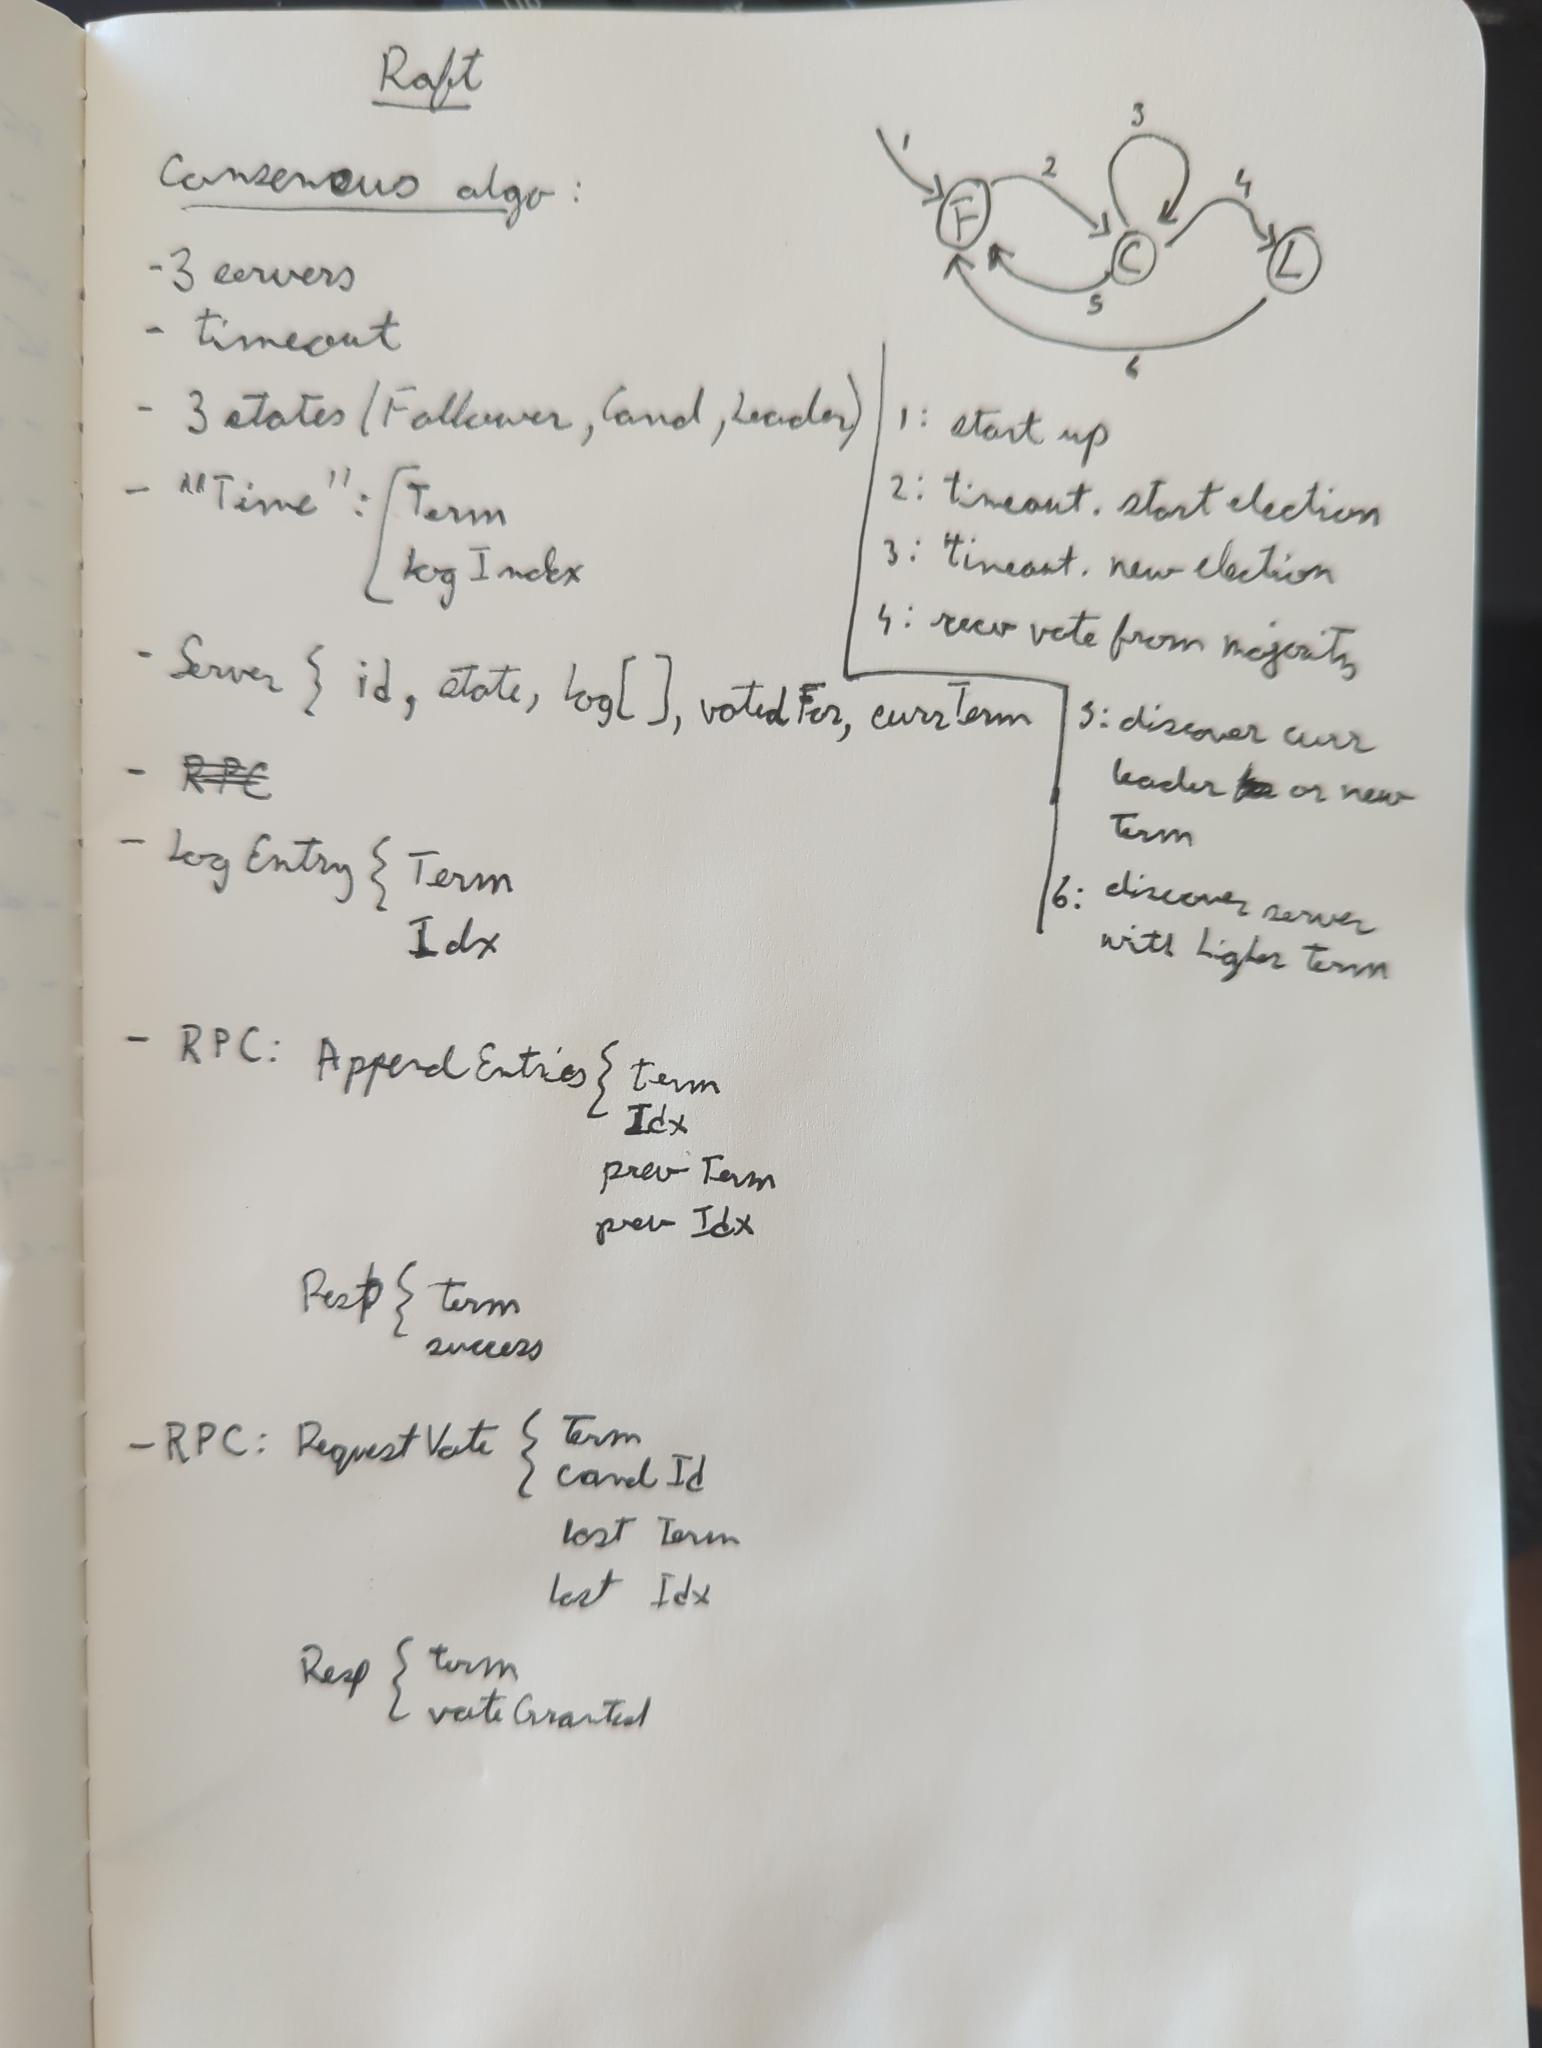 Raft
Consensus algo:
- 3 servers
- timeout
- 3 states (Follower, Cand, Leader)
- "Time": [ Term
log Index
- Server { id, state, log[], votedFor, currTerm
- RPC
- Log Entry { Term
Idx
- RPC: Append Entries { term
Idx
prev Term
prev Idx
Resp { term
success
- RPC: Request Vote { Term
cand Id
last Term
last Idx
Resp { term
vote Granted
1
2
3
4
F
C
L
5
6
1: start up
2: timeout. start election
3: timeout. new election
4: recv vote from majority
5: discover curr
leader or new
Term
6: discover server
with higher term